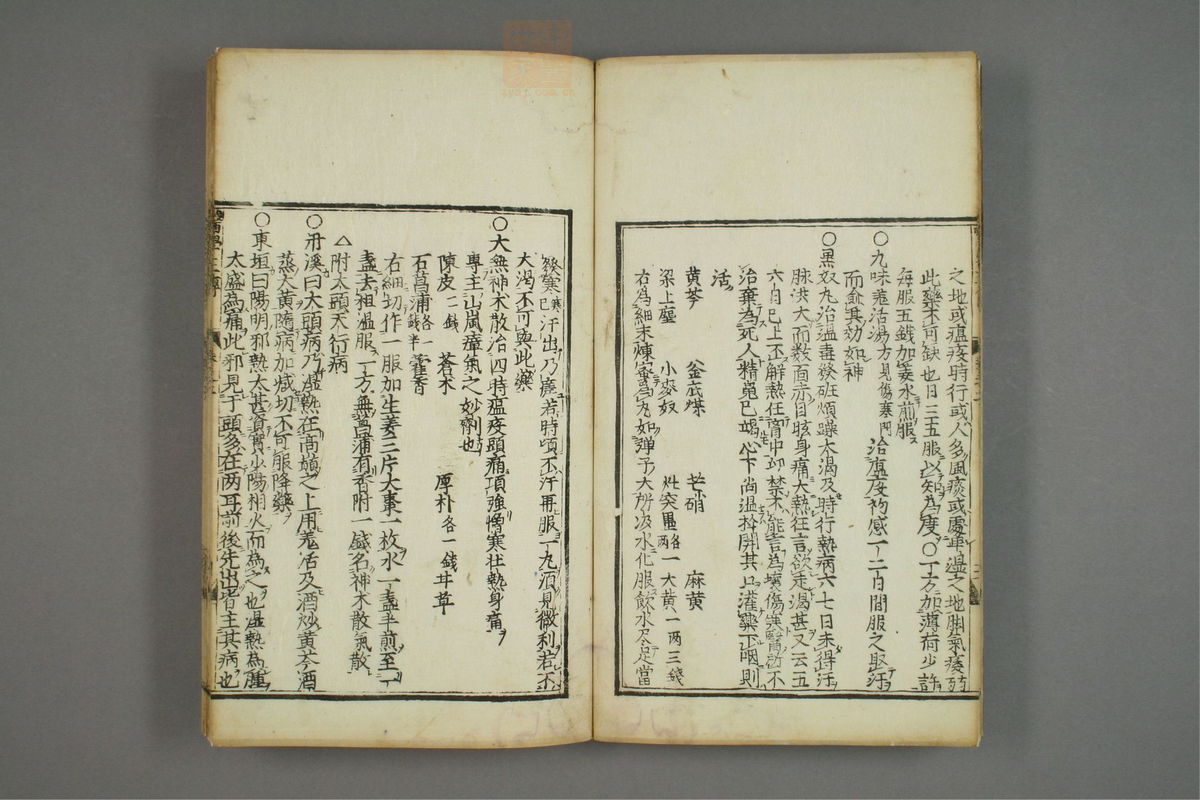 之地或瘟疫時行或人多風痰或處卑濕之地脚氣痿弱
此藥不可缺也日三五服以知為度○一方加薄荷少許
每服五錢加姜水煎服
○九味羌活湯方見傷寒門治瘟疫初感一二日間服之取汗
而愈其効如神
○黒奴丸治温毒發斑煩躁大渴及時行熱病六七日未得汗
脉洪大而数面赤目眩身痛大熱狂言欲走渴甚又云五
六日已上不解熱在胷中口禁不能言為壞傷寒醫所不
治棄為死人精魂已竭心下尚温拌開其口灌藥下咽則
活
黄芩 釜底煤 芒硝 麻黄
梁上塵 小麥奴 灶突墨各一両 大黄一両三錢
右為細末煉蜜為丸如弾子大新汲水化服飲水尽足當
發寒寒已汗出乃瘥若時頃不汗再服一丸須見微利若不
大渴不可與此藥
○大無神术散治四時瘟疫頭痛項強憎寒壮熱身痛
專主山嵐瘴氣之妙劑也
陳皮二錢 蒼术 厚朴各一錢 甘草
石菖蒲各一錢半 藿香
右細切作一服加生姜三片大棗一枚水一盞半煎至一
盞去柤温服一方無菖蒲有香附一錢名神术散氣散
△附大頭天行病
○丹溪曰大頭病乃濕熱在高巓之上用羌活及酒炒黄芩酒
蒸大黄隨病加减切不可服降藥
○東垣曰陽明邪熱太甚資實少陽相火而為之也湿熱為腫
太盛為痛此邪見于頭多在両耳前後先出者主其病也